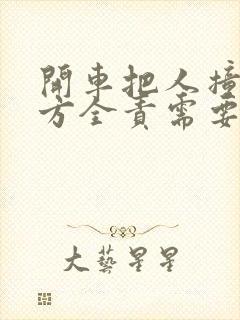 開車把人撞
方全責需要
大藝星星